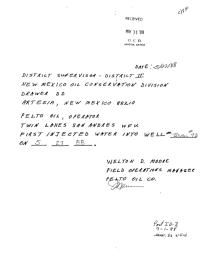 RECEIVED
MAY 31 '88
O. C. D.
ARTESIA, OFFICE
DATE: 5/27/88
DISTRICT SUPERVISOR - DISTRICT II
NEW MEXICO OIL CONSERVATION DIVISION
DRAWER DD
ARTESIA, NEW MEXICO 88210
PELTO OIL, OPERATOR
TWIN LAKES SAN ANDRES UNIT
FIRST INJECTED WATER INTO WELL #
ON 5 27 88.
WELTON D. MOORE
FIELD OPERATIONS MANAGER
PELTO OIL CO.
Post ID-3